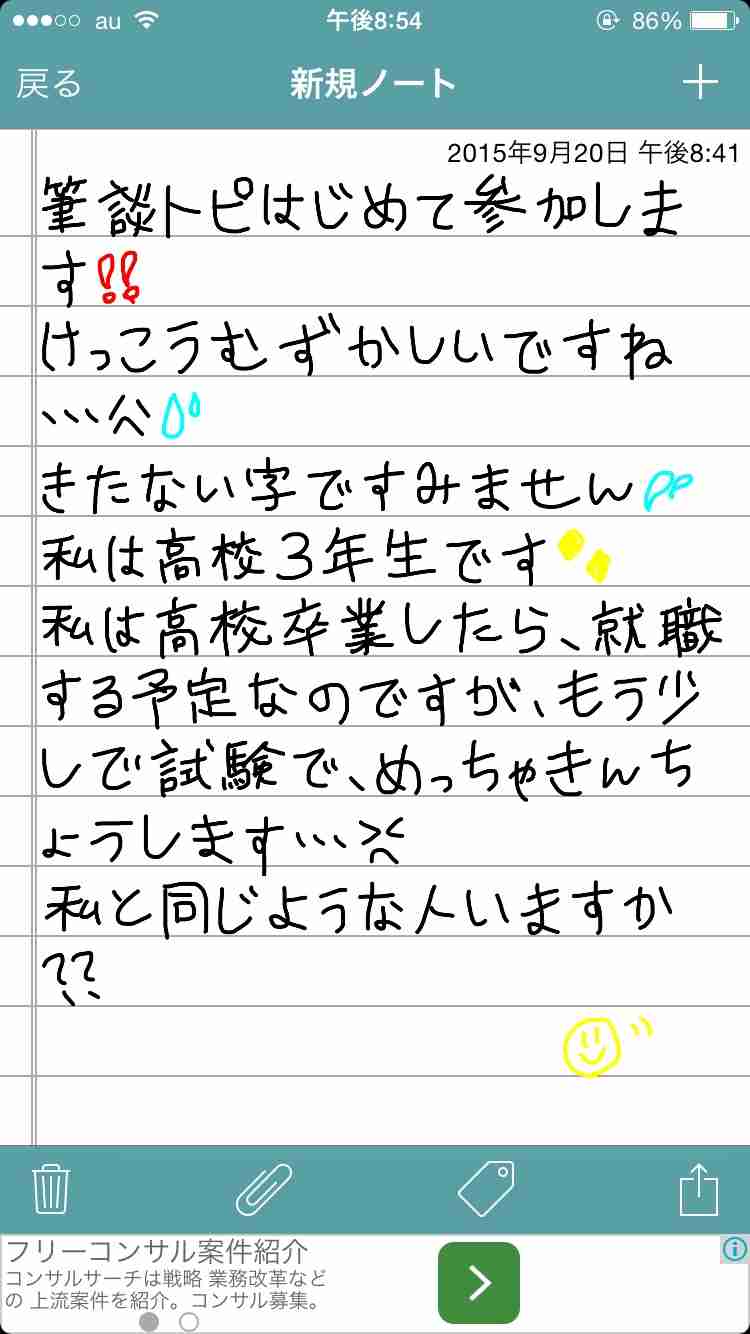 au 午後8:54 86%
戻る 新規ノート
2015年9月20日 午後8:41
筆談トピはじめて参加しま
す!!
けっこうむずかしいですね
…
きたない字ですみません
私は高校3年生です
私は高校卒業したら、就職
する予定なのですが、もう少
しで試験で、めっちゃきんち
ょうします…><
私と同じような人いますか
??
フリーコンサル案件紹介
コンサルサーチは戦略 業務改革など
の 上流案件を紹介。コンサル募集。